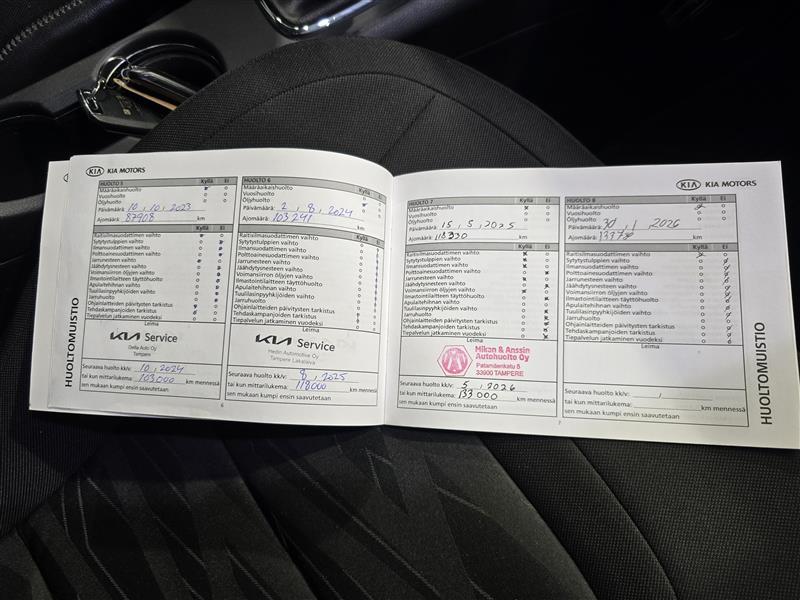 KIA MOTORS
HUOLTO 5 Kyllä Ei
Määräaikaishuolto
Vuosihuolto
Öljyhuolto
Päivämäärä: 10, 10, 2023
Ajomäärä: 87908 km
Kyllä Ei
Raitisilmasuodattimen vaihto
Sytytystulppien vaihto
Ilmansuodattimen vaihto
Polttoainesuodattimen vaihto
Jarrunesteen vaihto
Jäähdytysnesteen vaihto
Voimansiirron öljyjen vaihto
Ilmastointilaitteen täyttöhuolto
Apulaitehihnan vaihto
Tuulilasinpyyhkijöiden vaihto
Jarruhuolto
Ohjainlaitteiden päivitysten tarkistus
Tehdaskampanjoiden tarkistus
Tiepalvelun jatkaminen vuodeksi
Leima
KIA Service
Delta Auto Oy
Tampere
Seuraava huolto kk/v: 10, 2024
tai kun mittarilukema: 103000 km mennessä
sen mukaan kumpi ensin saavutetaan
6
HUOLTOMUISTIO
HUOLTO 6 Kyllä Ei
Määräaikaishuolto
Vuosihuolto
Öljyhuolto
Päivämäärä: 2, 8, 2024
Ajomäärä: 103241 km
Kyllä Ei
Raitisilmasuodattimen vaihto
Sytytystulppien vaihto
Ilmansuodattimen vaihto
Polttoainesuodattimen vaihto
Jarrunesteen vaihto
Jäähdytysnesteen vaihto
Voimansiirron öljyjen vaihto
Ilmastointilaitteen täyttöhuolto
Apulaitehihnan vaihto
Tuulilasinpyyhkijöiden vaihto
Jarruhuolto
Ohjainlaitteiden päivitysten tarkistus
Tehdaskampanjoiden tarkistus
Tiepalvelun jatkaminen vuodeksi
Leima
KIA Service
Hedin Automotive Oy
Tampere Lakalaiva
Seuraava huolto kk/v: 8, 2025
tai kun mittarilukema: 118000 km mennessä
sen mukaan kumpi ensin saavutetaan
KIA MOTORS
HUOLTO 7 Kyllä Ei
Määräaikaishuolto
Vuosihuolto
Öljyhuolto
Päivämäärä: 15, 5, 2025
Ajomäärä: 118330 km
Kyllä Ei
Raitisilmasuodattimen vaihto
Sytytystulppien vaihto
Ilmansuodattimen vaihto
Polttoainesuodattimen vaihto
Jarrunesteen vaihto
Jäähdytysnesteen vaihto
Voimansiirron öljyjen vaihto
Ilmastointilaitteen täyttöhuolto
Apulaitehihnan vaihto
Tuulilasinpyyhkijöiden vaihto
Jarruhuolto
Ohjainlaitteiden päivitysten tarkistus
Tehdaskampanjoiden tarkistus
Tiepalvelun jatkaminen vuodeksi
Leima
Mikan & Anssin
Autohuolto Oy
Patamäenkatu 5
33900 TAMPERE
Seuraava huolto kk/v: 5, 2026
tai kun mittarilukema: 133000 km mennessä
sen mukaan kumpi ensin saavutetaan
7
HUOLTO 8 Kyllä Ei
Määräaikaishuolto
Vuosihuolto
Öljyhuolto
Päivämäärä: 30, 1, 2026
Ajomäärä: km
Kyllä Ei
Raitisilmasuodattimen vaihto
Sytytystulppien vaihto
Ilmansuodattimen vaihto
Polttoainesuodattimen vaihto
Jarrunesteen vaihto
Jäähdytysnesteen vaihto
Voimansiirron öljyjen vaihto
Ilmastointilaitteen täyttöhuolto
Apulaitehihnan vaihto
Tuulilasinpyyhkijöiden vaihto
Jarruhuolto
Ohjainlaitteiden päivitysten tarkistus
Tehdaskampanjoiden tarkistus
Tiepalvelun jatkaminen vuodeksi
Leima
Seuraava huolto kk/v: ,
tai kun mittarilukema: km mennessä
sen mukaan kumpi ensin saavutetaan
HUOLTOMUISTIO